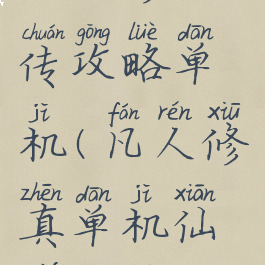 chuán gōng lüè dān
传攻略单
jī fán rén xiū
机(凡人修
zhēn dān jī xiān
真单机仙